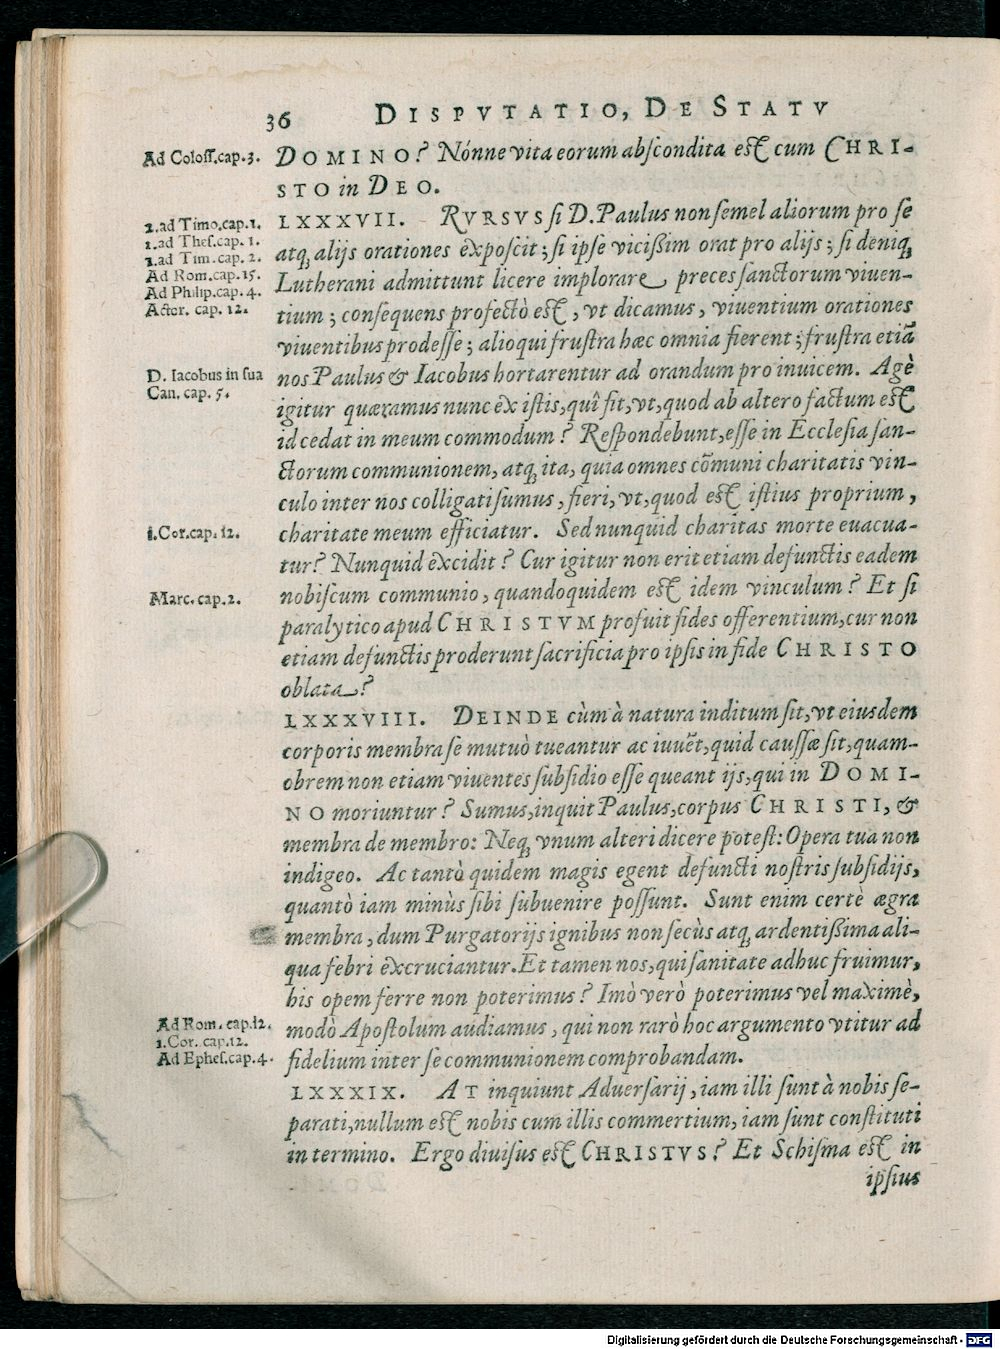 36 DISPVTATIO, DE STATV
Ad Coloss.cap.3.
DOMINO? Nónne vita eorum abscondita est cum CHRI-
STO in DEO.
2.ad Timo.cap.1.
1.ad Thes.cap. 1.
1.ad Tim.cap. 2.
Ad Rom.cap.15.
Ad Philip.cap. 4.
Actor. cap. 12.
LXXXVII. RVRSVS si D.Paulus non semel aliorum pro se
atq; alijs orationes exposcit; si ipse vicißim orat pro alijs; si deniq;
Lutherani admittunt licere implorare preces sanctorum viuen-
tium; consequens profectò est, vt dicamus, viuentium orationes
viuentibus prodesse; alioqui frustra hæc omnia fierent; frustra etiā
D. Iacobus in sua
Can. cap. 5.
nos Paulus & Iacobus hortarentur ad orandum pro inuicem. Agè
igitur quæramus nunc ex istis, quî fit, vt, quod ab altero factum est
id cedat in meum commodum? Respondebunt, esse in Ecclesia san-
ctorum communionem, atq; ita, quia omnes cõmuni charitatis vin-
culo inter nos colligati sumus, fieri, vt, quod est istius proprium,
1.Cor.cap.12.
charitate meum efficiatur. Sed nunquid charitas morte euacua-
tur? Nunquid excidit? Cur igitur non erit etiam defunctis eadem
Marc.cap.2.
nobiscum communio, quandoquidem est idem vinculum? Et si
paralytico apud CHRISTVM profuit fides offerentium, cur non
etiam defunctis proderunt sacrificia pro ipsis in fide CHRISTO
oblata?
LXXXVIII. DEINDE cùm à natura inditum sit, vt eiusdem
corporis membra se mutuò tueantur ac iuuēt, quid caussæ sit, quam-
obrem non etiam viuentes subsidio esse queant ijs, qui in DOMI-
NO moriuntur? Sumus, inquit Paulus, corpus CHRISTI, &
membra de membro: Neq; vnum alteri dicere potest: Opera tua non
indigeo. Ac tantò quidem magis egent defuncti nostris subsidijs,
quantò iam minùs sibi subuenire possunt. Sunt enim certè ægra
membra, dum Purgatorijs ignibus non secùs atq; ardentißima ali-
qua febri excruciantur. Et tamen nos, qui sanitate adhuc fruimur,
his opem ferre non poterimus? Imò verò poterimus vel maximè,
Ad Rom. cap.12.
1.Cor. cap.12.
Ad Ephes.cap.4.
modò Apostolum audiamus, qui non rarò hoc argumento vtitur ad
fidelium inter se communionem comprobandam.
LXXXIX. AT inquiunt Aduersarij, iam illi sunt à nobis se-
parati, nullum est nobis cum illis commertium, iam sunt constituti
in termino. Ergo diuisus est CHRISTVS? Et Schisma est in
ipsius
Digitalisierung gefördert durch die Deutsche Forschungsgemeinschaft - DFG